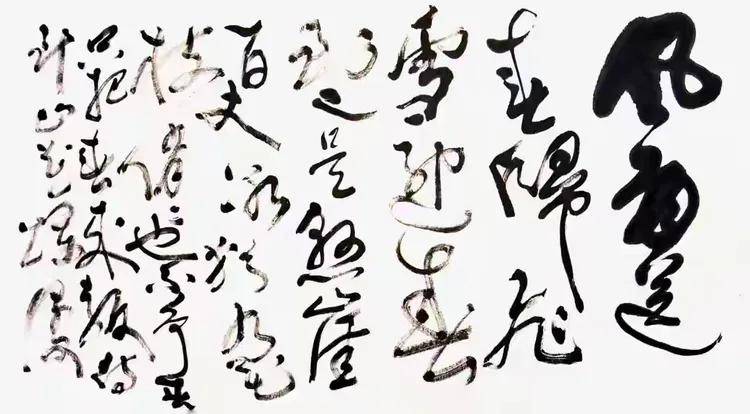 风雨送
春归飞
雪迎春
到已是悬崖
百丈冰犹有花
枝俏也不争春
只把春来报待
到山花烂漫